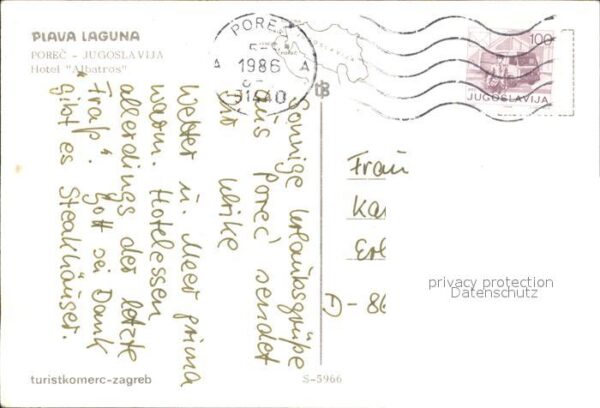 PLAVA LAGUNA
POREČ - JUGOSLAVIJA
Hotel "Albatros"
POREČ
5
1986
51440
JUGOSLAVIJA
100
JUGOSLAVIJA
Sonnige Urlaubsgrüße
aus Poreč sendet
Dir Ulrike
Wetter u. Meer prima
warm. Hotelessen
allerdings der letzte
"Fraß". Gott sei Dank
gibt es Steakhäuser.
Frau
Ka
Erl
D - 86
privacy protection
Datenschutz
turistkomerc-zagreb
S-5966